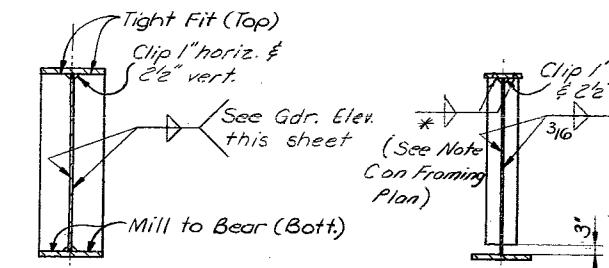 Tight Fit (Top)
Clip 1" horiz. &
2½" vert.
See Gdr. Elev.
this sheet
Mill to Bear (Bott.)
Clip 1"
& 2½"
*
3/16
(See Note
C on Framing
Plan)
3"